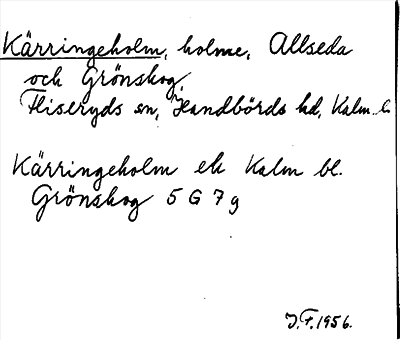 Kärringeholm, holme, Allseda
och Grönskog,
Fliseryds sn, Handbörds hd, Kalm. l.
Kärringeholm ek Kalm bl.
Grönskog 5 G 7 g
J.F. 1956.